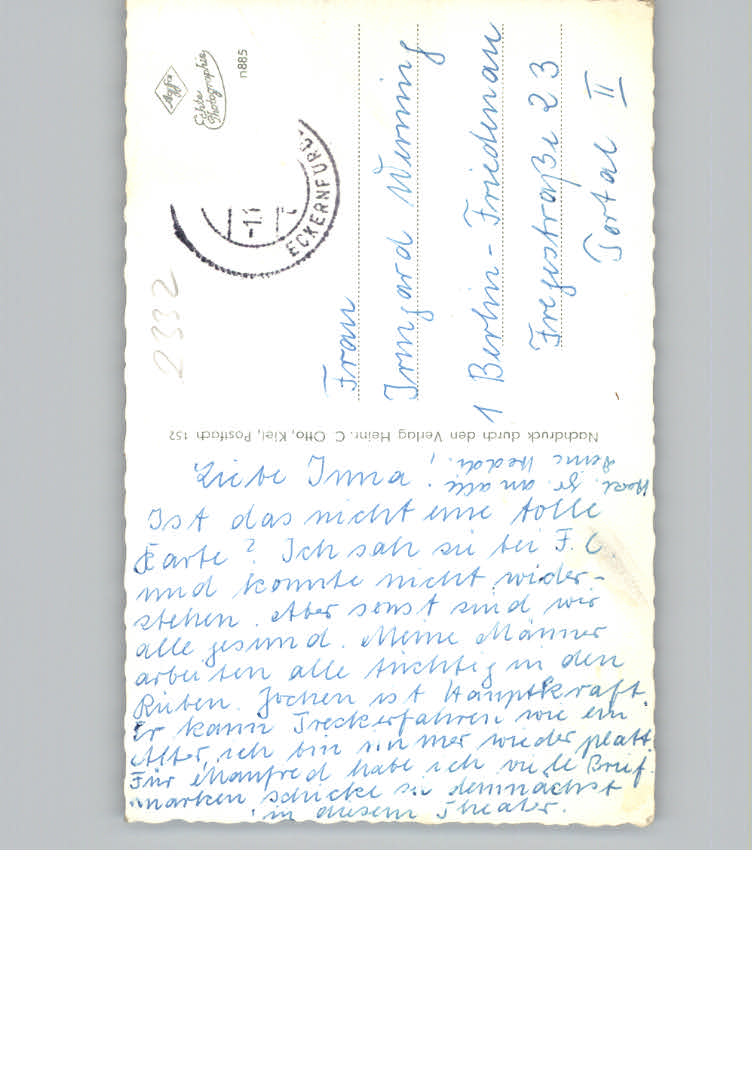 Liebe Imma!
Ist das nicht eine tolle
Karte? Ich sah sie bei F.C.
und konnte nicht wider-
stehen. Aber sonst sind wir
alle gesund. Meine Männer
arbeiten alle tüchtig in den
Rüben. Jochen ist Hauptkraft.
Er kann Treckerfahren wie ein
Alter, ich bin immer wieder platt.
Für Manfred habe ich viele Brief-
marken schicke sie demnächst
in diesem Theater.
Herzl. Gr. an alle!
Nachdruck durch den Verlag Heinr. C. Otto, Kiel, Postfach 152
Frau
Irmgard Werning
1 Berlin-Friedenau
Fregestraße 23
Portal II
ECKERNFÖRDE
Agfa
Echte
Photographie
n885
2332